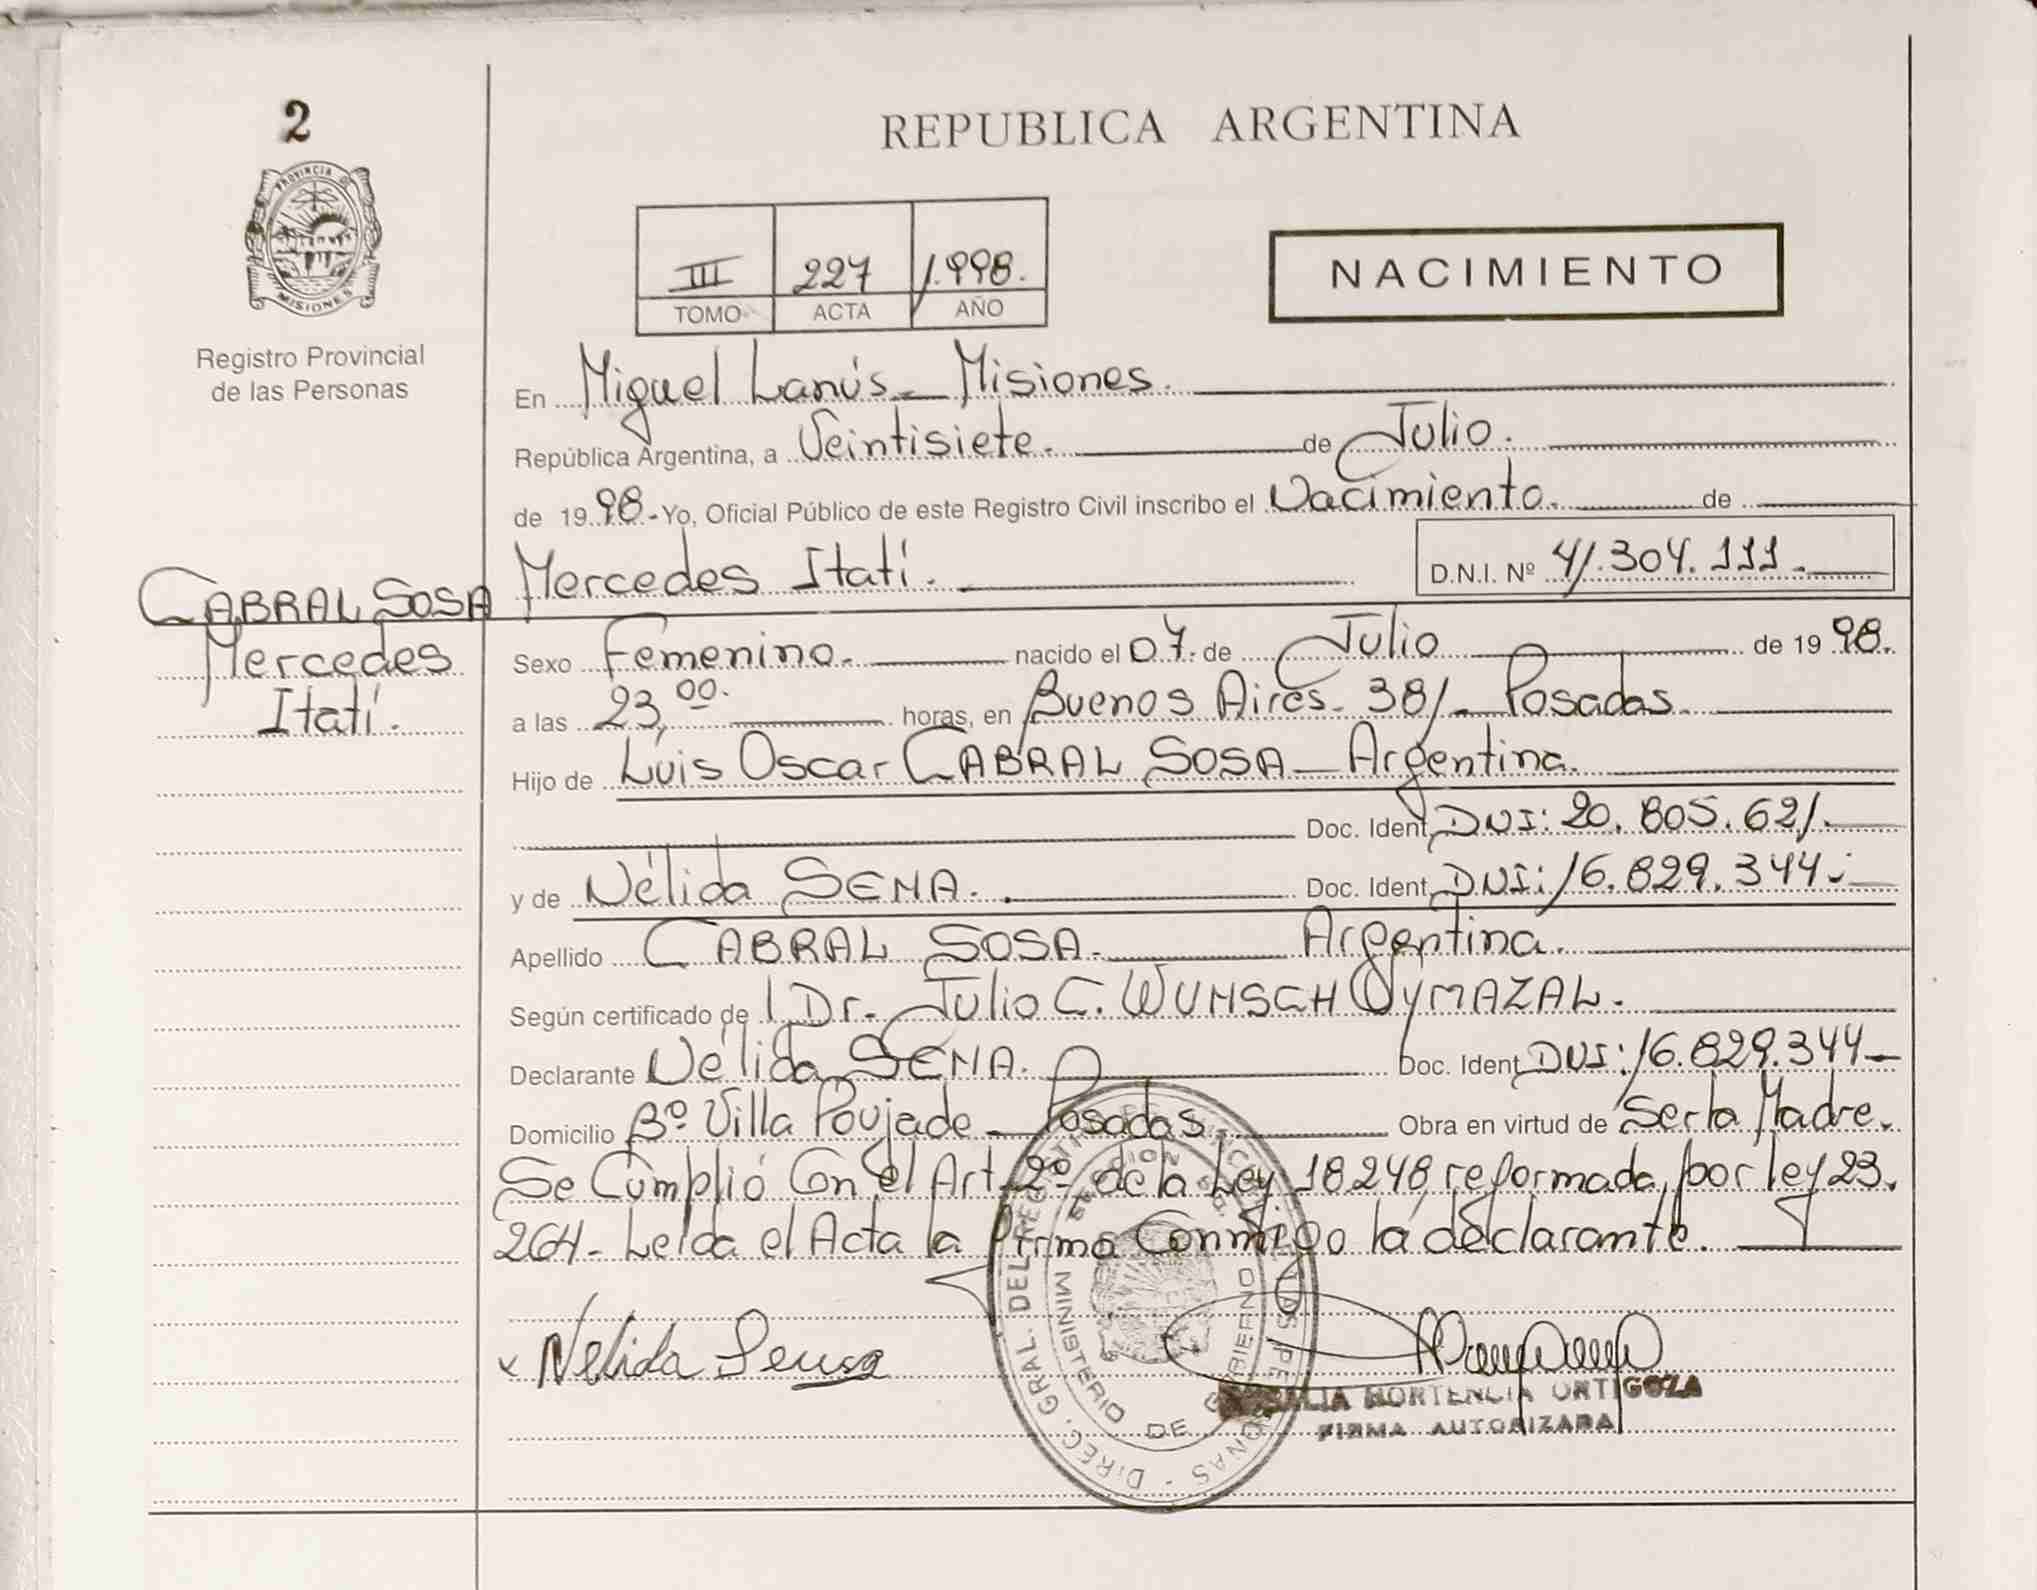 2
PROVINCIA D
MISIONES
Registro Provincial
de las Personas
CABRAL SOSA
Mercedes
Itatí.
REPUBLICA ARGENTINA
III 227 1.998.
TOMO ACTA AÑO
NACIMIENTO
En Miguel Lanús - Misiones.
República Argentina, a Veintisiete. de Julio.
de 1998.- Yo, Oficial Público de este Registro Civil inscribo el Nacimiento. de
Mercedes Itatí. D.N.I. Nº 41.304.111.
Sexo Femenino. nacido el 07. de Julio de 1998.
a las 23,00. horas, en Buenos Aires - 381 - Posadas.
Hijo de Luis Oscar CABRAL SOSA - Argentina.
Doc. Ident. DNI: 20.805.621.
y de Nélida SENA. Doc. Ident. DNI: 16.829.344.-
Apellido CABRAL SOSA. Argentina.
Según certificado de l Dr. Julio C. WUNSCH DYMAZAL.
Declarante Nélida SENA. Doc. Ident. DNI: 16.829.344-
Domicilio Bº Villa Poujade - Posadas. Obra en virtud de Ser la Madre.
Se Cumplió Con el Art. 2º de la Ley 18.248 reformada por ley 23.
264 - Leída el Acta la Firma Conmigo la declarante.
x Nelida Senna
HORTENCIA ORTIGOZA
FIRMA AUTORIZADA
DIREC. GRAL. DEL REGISTRO
PERSONAS
MINISTERIO DE GOBIERNO